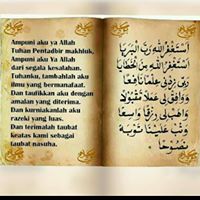 Ampuni aku ya Allah
Tuhan Pentadbir makhluk,
Ampuni aku Ya Allah
dari segala kesalahan.
Tuhanku, tambahlah aku
ilmu yang bermanafaat.
Dan taufikkan aku dengan
amalan yang diterima.
Dan kurniakanlah aku
razeki yang luas.
Dan terimalah taubat
keatas kami sebagai
taubat nasuha.
أَسْتَغْفِرُ اللهَ رَبَّ الْبَرَايَا
أَسْتَغْفِرُ اللهَ مِنَ الْخَطَايَا
رَبِّ زِدْنِي عِلْمًا نَافِعًا
وَوَفِّقْنِي عَمَلًا مَقْبُولًا
وَوَهِّبْ لِي رِزْقًا وَاسِعًا
وَتُبْ عَلَيْنَا تَوْبَةً
نَصُوْحًا